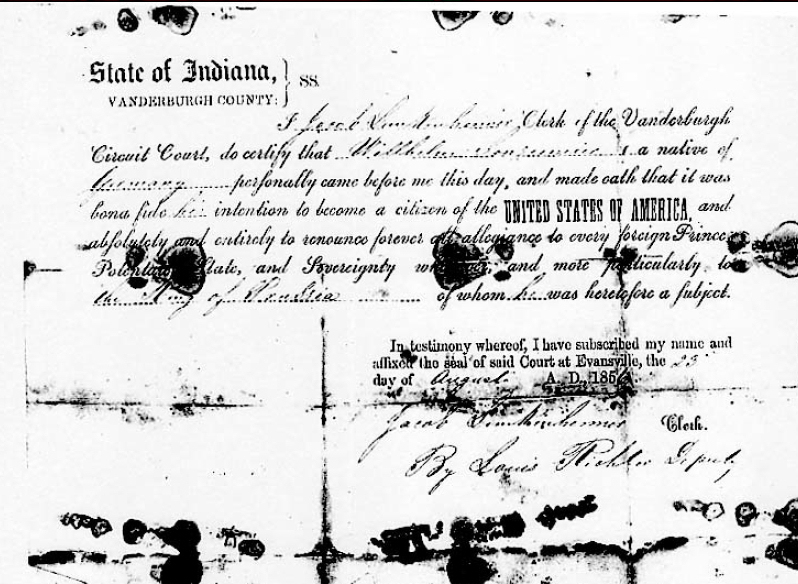 State of Indiana, } SS.
VANDERBURGH COUNTY:
I Jacob Lunkenheimer Clerk of the Vanderburgh
Circuit Court, do certify that Wilhelm a native of
Germany personally came before me this day, and made oath that it was
bona fide his intention to become a citizen of the UNITED STATES OF AMERICA, and
absolutely and entirely to renounce forever all allegiance to every foreign Prince,
Potentate, State, and Sovereignty whatever, and more particularly to
the King of of whom he was heretofore a subject.
In testimony whereof, I have subscribed my name and
affixed the seal of said Court at Evansville, the 23
day of August A. D., 185
Jacob Lunkenheimer Clerk.
By Louis Richter Deputy